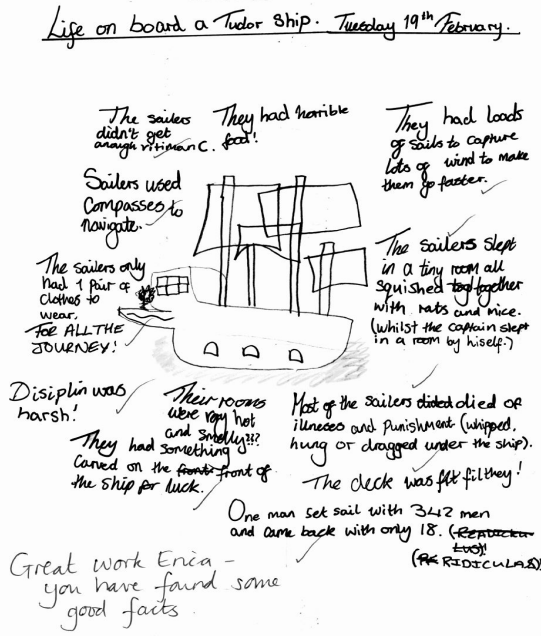 Life on board a Tudor Ship. Tuesday 19th February.
The sailers
didn't get
anough vitiman C.
They had horrible
food!
They had loads
of sails to capture
lots of wind to make
them go faster.
Sailers used
Compasses to
navigate.
The sailers slept
in a tiny room all
squished together
with rats and mice.
(whilst the captain slept
in a room by hiself.)
The sailors only
had 1 pair of
clothes to
wear.
FOR ALL THE
JOURNEY!
Disiplin was
harsh!
Their rooms
were very hot
and smelly???
They had something
carved on the front front of
the ship for luck.
Most of the sailers died of
illneces and Punishment (whipped,
hung or dragged under the ship).
The deck was filthey!
One man set sail with 342 men
and came back with only 18.
(RIDICULAS)!
Great work Erica –
you have found some
good facts